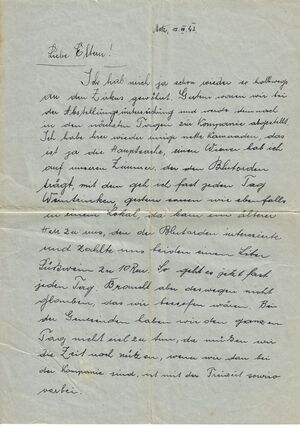 Metz, 15. IV 43
Liebe Eltern!
Ich hab mich ja schon wieder so halbwegs
an den Zirkus gewöhnt. Gestern waren wir bei
der Abstellungsuntersuchung und werde demnach
in den nächsten Tagen zur Kompanie abgestellt.
Ich habe hier wieder einige nette Kameraden, das
ist ja die Hauptsache, einen Wiener hab ich
auf unseren Zimmer, der den Blutorden
trägt, mit dem geh ich fast jeden Tag
Weintrinken, gestern sassen wir ebenfalls
in einem Lokal, da kam ein älterer
Herr zu uns, den der Blutorden interessierte
und zahlte uns beiden einen Liter
Süsswein zu 10 Rm. So geht es jetzt fast
jeden Tag Brandl aber deswegen nicht
glauben, das wir besoffen wären. Bei
der Genesenden haben wir den ganzen
Tag nicht viel zu tun, da müssen wir
die Zeit noch nützen, wenn wir dan bei
der Kompanie sind, ist mit der Freizeit sowieso
vorbei.